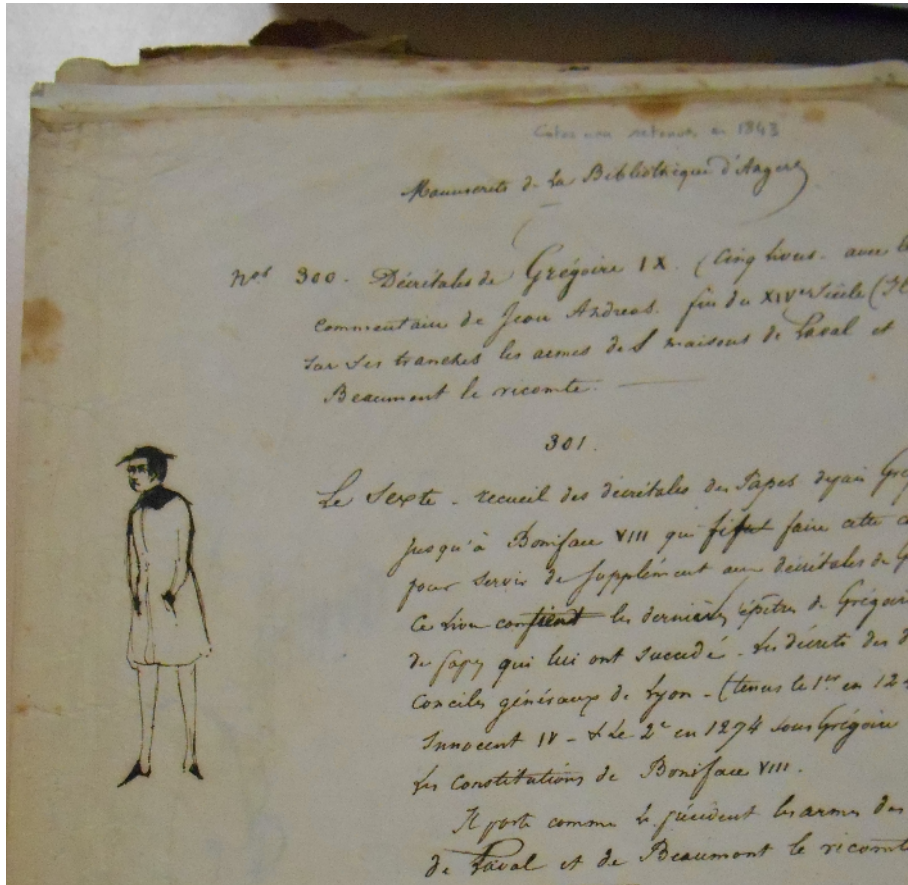 Cotes non retenues en 1843
Manuscrits de la Bibliothèque d'Angers
Nos 300. Décrétales de Grégoire IX. (Cinq livres. avec le
commentaire de Jean Andreas. fin du XIVe Siècle (Il
sur ses tranches les armes des maisons de Laval et
Beaumont le vicomte.
301.
Le Sexte - recueil des décrétales des Papes depuis Grég
jusqu'à Boniface VIII qui fit faire cette c
pour servir de supplément aux décrétales de G
Ce livre contient les dernières épîtres de Grégoire
de papes qui lui ont succédé. Les décrets des d
Conciles généraux de Lyon - (tenus le 1er en 124
Innocent IV - & le 2e en 1274 sous Grégoire
les constitutions de Boniface VIII.
Il porte comme le précédent les armes des
de Laval et de Beaumont le vicomte